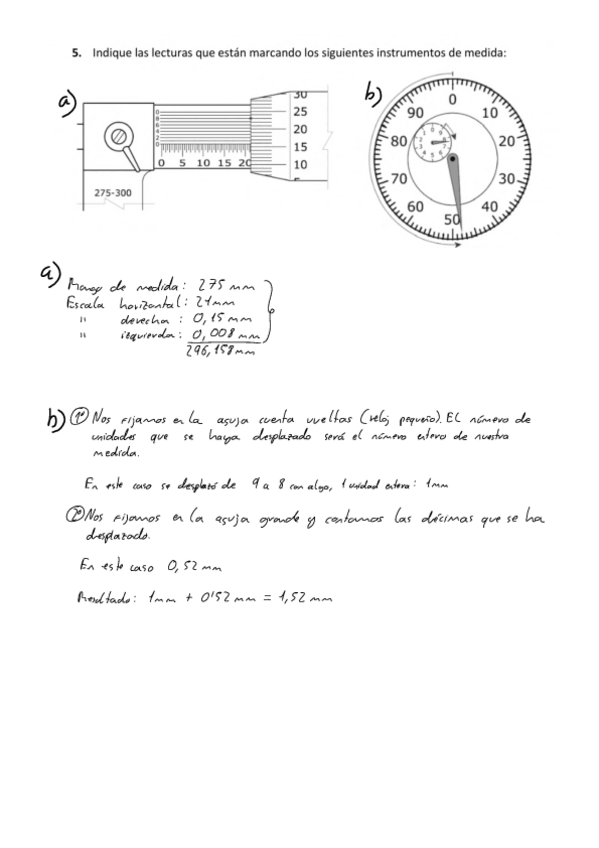 5. Indique las lecturas que están marcando los siguientes instrumentos de medida:
a)
0
8
6
4
2
0
0 5 10 15 20
30
25
20
15
10
5
275-300
b)
0
10
20
30
40
50
60
70
80
90
a)
Rango de medida: 275 mm
Escala horizontal: 21mm
" derecha : 0,15 mm
" izquierda : 0,008 mm
296,158mm
b) 1º Nos fijamos en la aguja cuenta vueltas (reloj pequeño). El número de
unidades que se haya desplazado será el número entero de nuestra
medida.
En este caso se desplazó de 9 a 8 con algo, 1 unidad entera: 1mm
2º Nos fijamos en la aguja grande y contamos las décimas que se ha
desplazado.
En este caso 0,52 mm
Resultado: 1mm + 0'52 mm = 1,52 mm